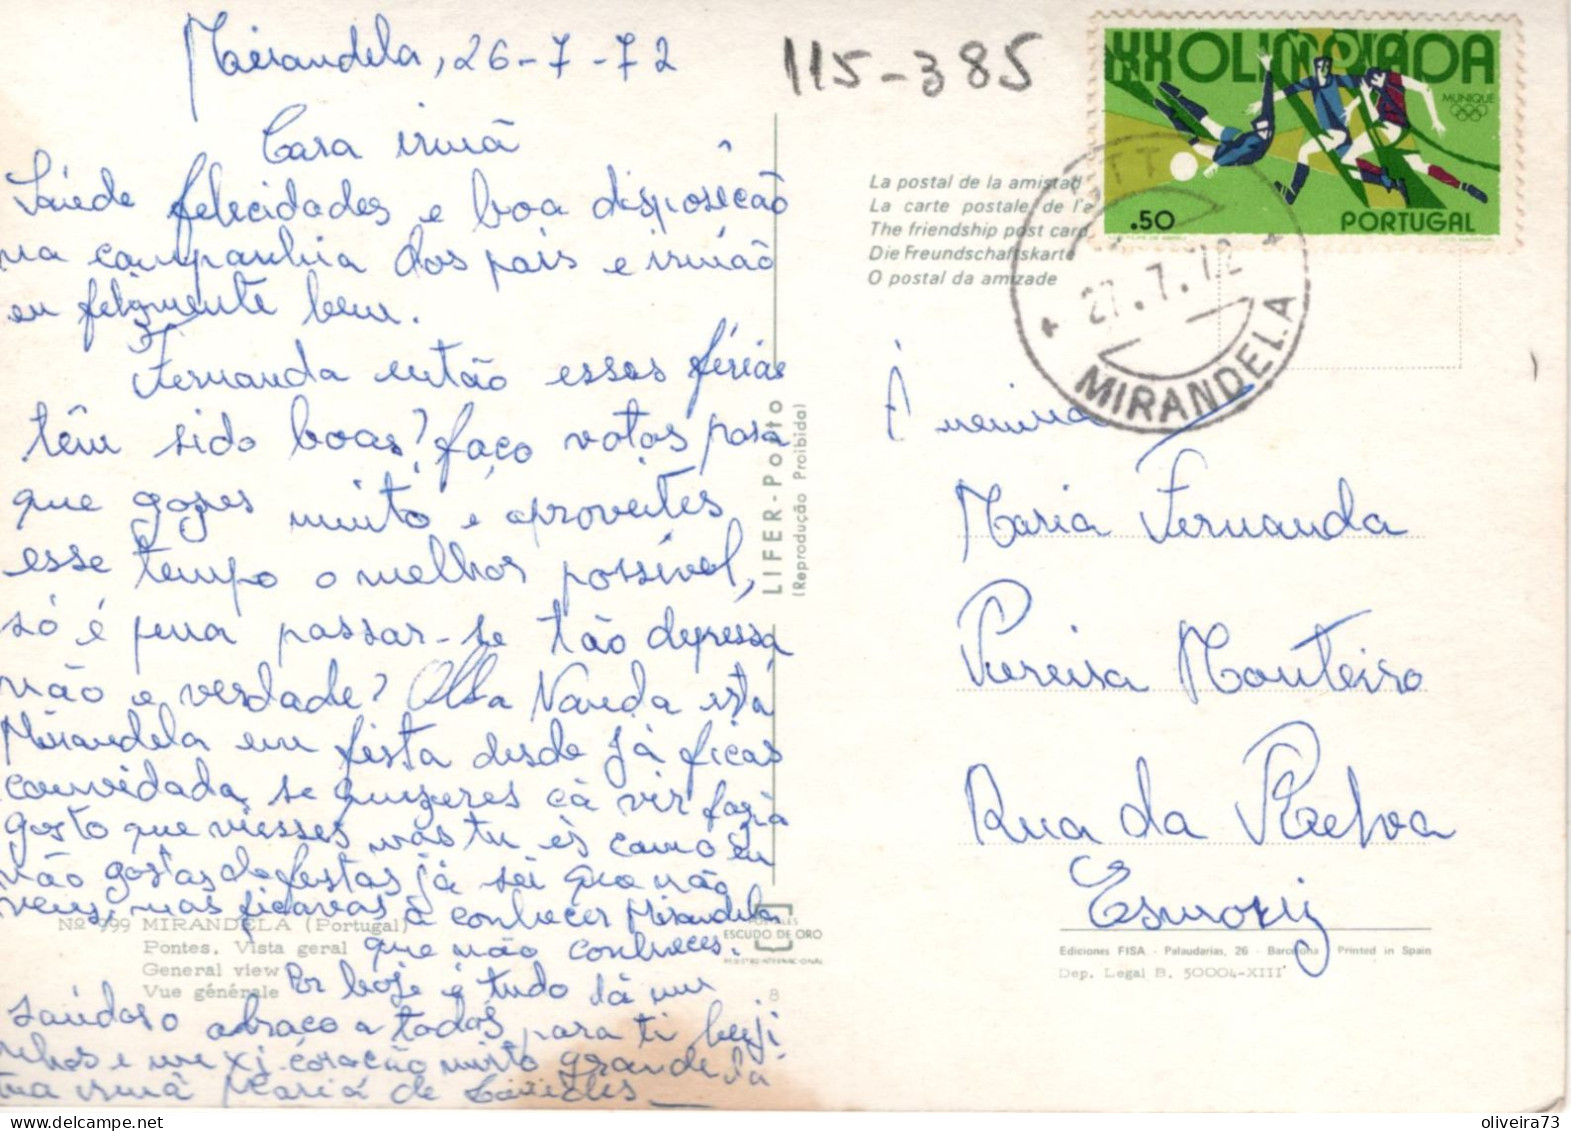 Mirandela, 26-7-72
Cara irmã
Saúde felicidades e boa disposição
na companhia dos pais e irmão
eu felizmente bem.
Fernanda então essas férias
têm sido boas? faço votos para
que gozes muito e aproveites
esse tempo o melhor possível,
só é pena passar-se tão depressa
não é verdade? Olha Nanda está
Mirandela em festa desde já ficas
convidada, se quizeres cá vir fazia
gosto que viesses mas tu és como eu
não gostas de festas já sei que não
vens, mas ficavas a conhecer Mirandela
que não conheces.
Por hoje é tudo dá um
saúdoso abraço a todos, para ti beiji
nhos e um xi-coração muito grande da
tua irmã Maria de Lurdes
115-385
XX OLIMPÍADA
MUNIQUE
.50
PORTUGAL
CTT
27.7.72
MIRANDELA
La postal de la amistad
La carte postale de l'a
The friendship post card
Die Freundschaftskarte
O postal da amizade
LIFER - Porto
(Reprodução Proibida)
À menina
Maria Fernanda
Pereira Monteiro
Rua da Relva
Esmoriz
Nº 999 MIRANDELA (Portugal)
Pontes. Vista geral
General view
Vue générale
POSTALES
ESCUDO DE ORO
REGISTRO INTERNACIONAL
8
Ediciones FISA - Palaudarias, 26 - Barcelona Printed in Spain
Dep. Legal B. 50004-XIII
www.delcampe.net
oliveira73